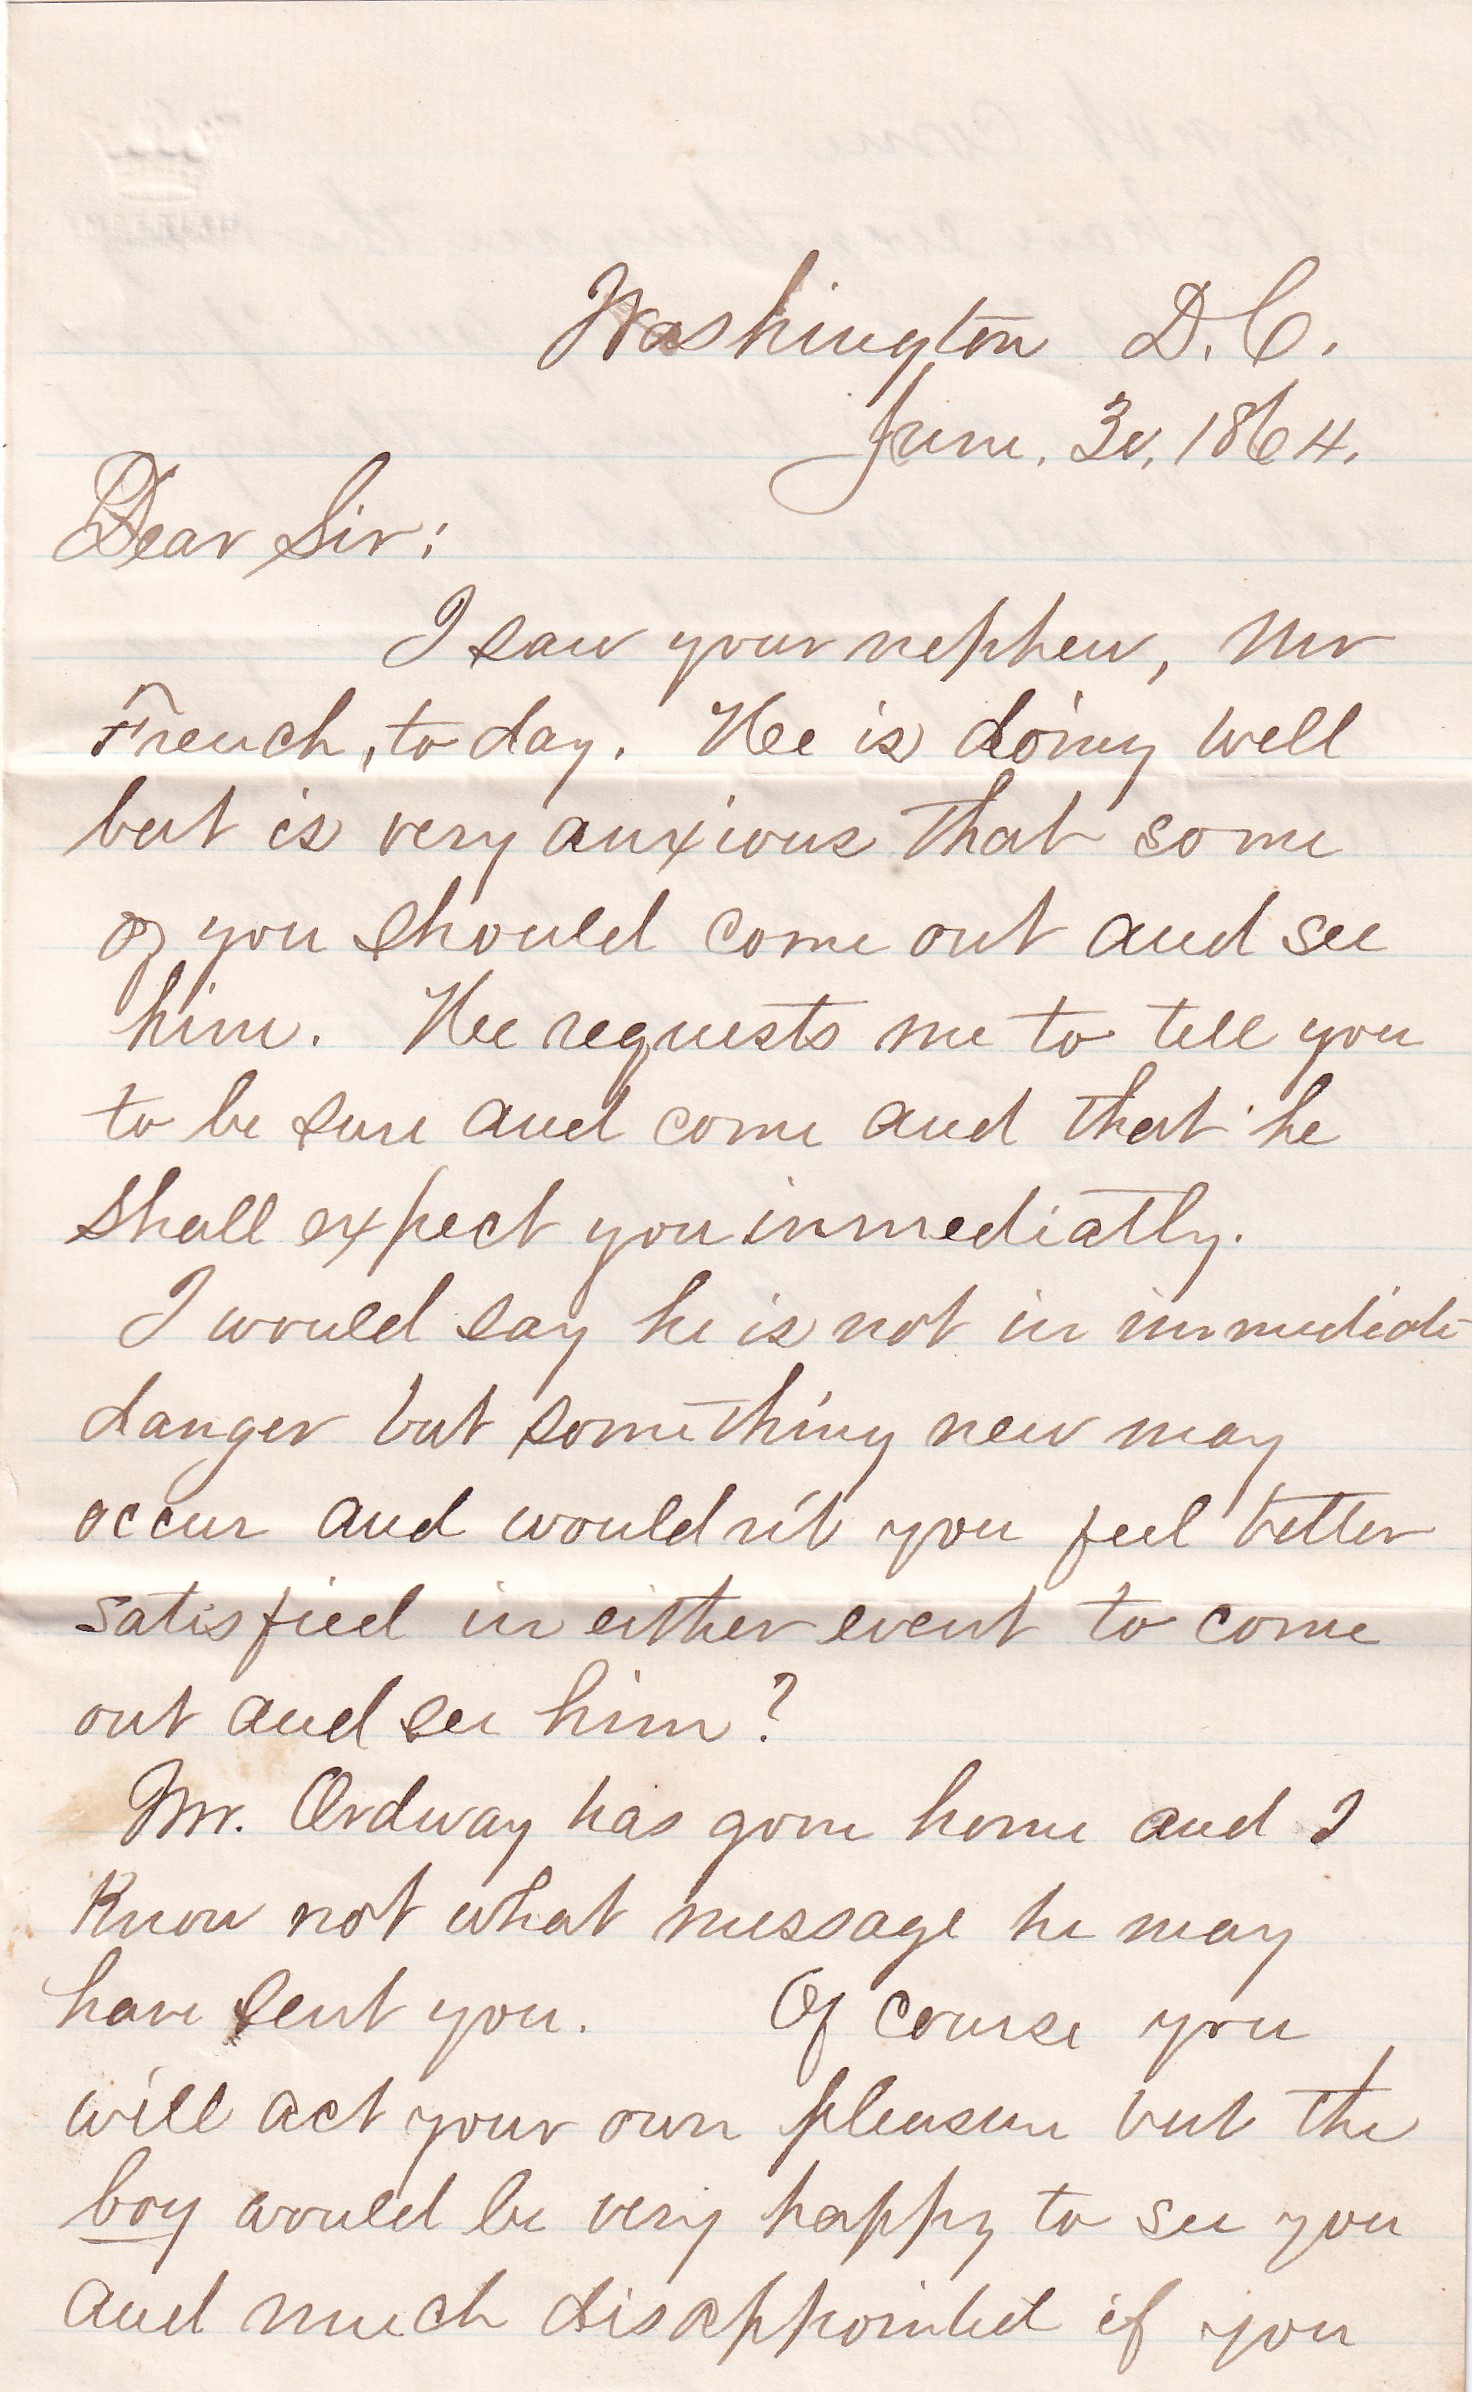 Washington D.C.
June. 30, 1864.
Dear Sir:
I saw your nephew, Mr
French, to day. He is doing well
but is very anxious that some
of you should come out and see
him. He requests me to tell you
to be sure and come and that he
shall expect you immediatly.
I would say he is not in immediate
danger but something new may
occur and wouldn't you feel better
satisfied in either event to come
out and see him?
Mr. Ordway has gone home and I
know not what message he may
have sent you. Of course you
will act your own pleasure but the
boy would be very happy to see you
and much disappointed if you